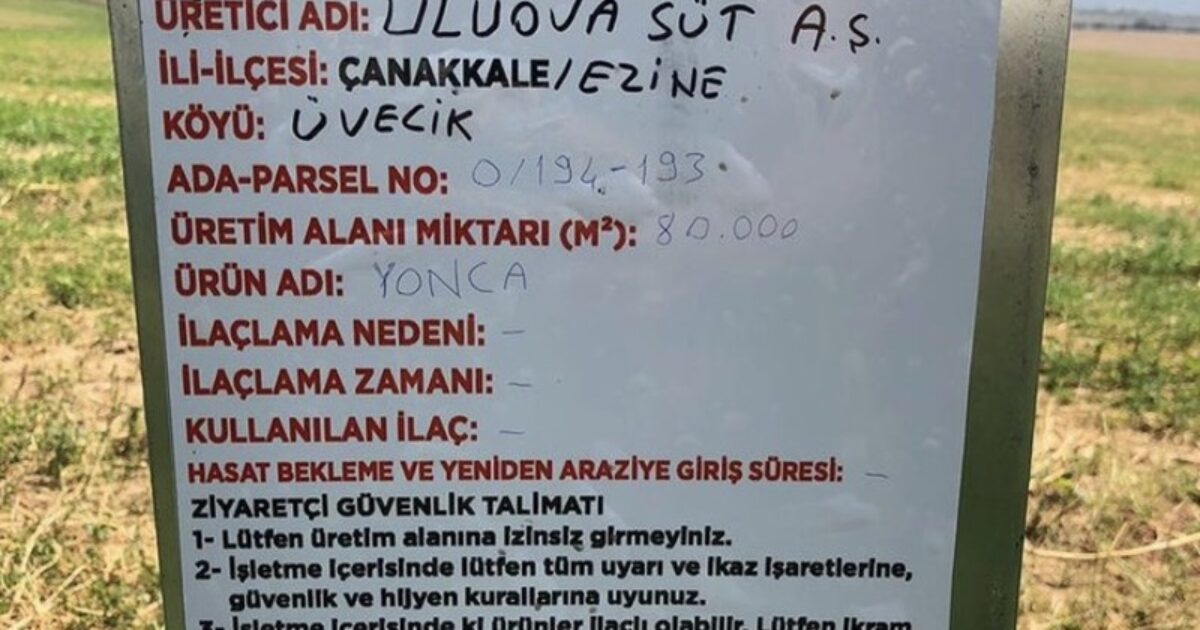 ÜRETİCİ ADI: ULUOVA SÜT A.Ş.
İLİ-İLÇESİ: ÇANAKKALE/EZİNE
KÖYÜ: ÜVECİK
ADA-PARSEL NO: 0/194-193
ÜRETİM ALANI MİKTARI (M²): 80.000
ÜRÜN ADI: YONCA
İLAÇLAMA NEDENİ: -
İLAÇLAMA ZAMANI: -
KULLANILAN İLAÇ: -
HASAT BEKLEME VE YENİDEN ARAZİYE GİRİŞ SÜRESİ: -
ZİYARETÇİ GÜVENLİK TALİMATI
1- Lütfen üretim alanına izinsiz girmeyiniz.
2- İşletme içerisinde lütfen tüm uyarı ve ikaz işaretlerine,
güvenlik ve hijyen kurallarına uyunuz.
3- İşletme içerisinde ki ürünler ilaçlı olabilir. Lütfen ikram